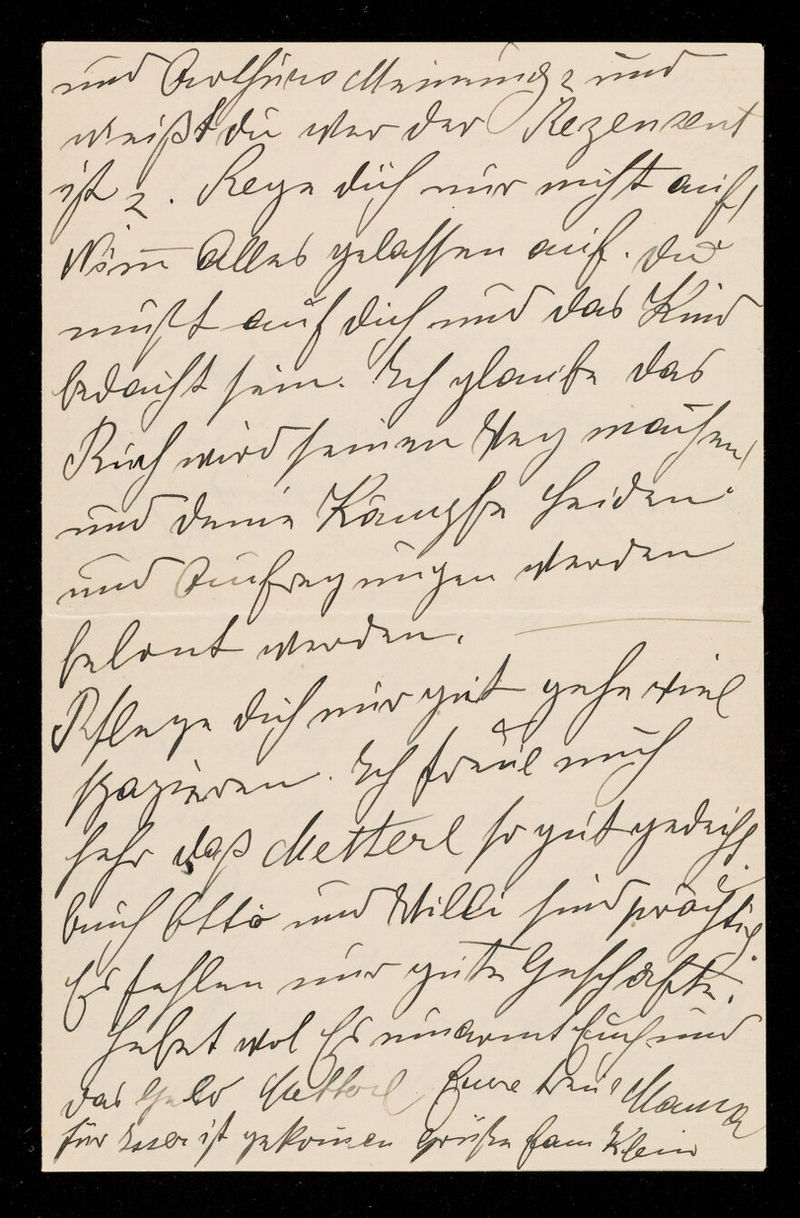 und Arthurs Meinung? und
weißt du wer der Rezensent
ist?. Rege dich nur nicht auf,
Nim̄ Alles gelassen auf. Du
mußt auf dich und das Kind
bedacht sein. Ich glaube das
Buch wird seinen Weg machen,
und deine Kämpfe Leiden
und Aufregungen werden
belont werden.
Pflege dich nur gut gehe viel
spazieren. Ich freue mich
sehr daß Metterl so gut gedeiht
auch Otto und Willi sind prächtig.
Es fehlen nur gute Geschäfte.
Lebet wol Es umarmt Euch und
das Metterl Eure treue Mama
für ist gekommen Grüße Fam Klein